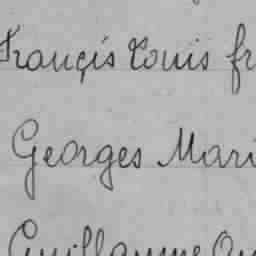 François Louis fr
Georges Mari
Guillaume